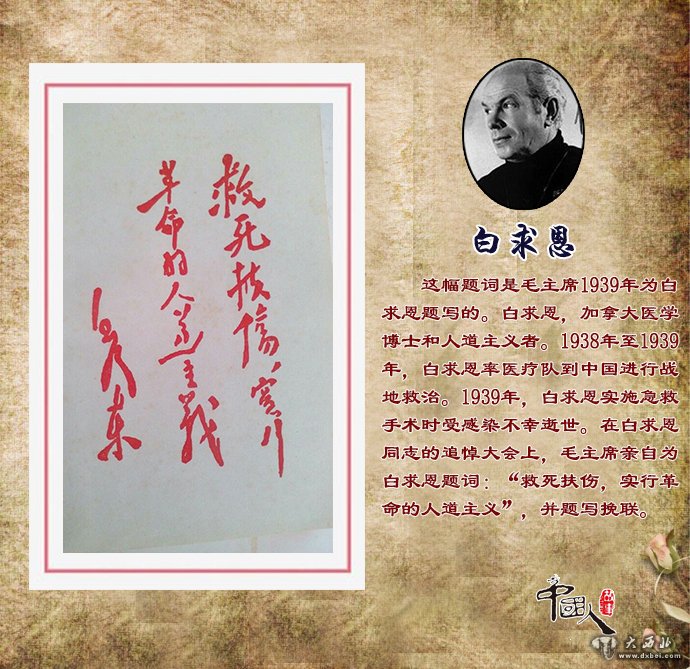 救死扶傷，實行
革命的人道主義
毛澤東
白求恩
这幅题词是毛主席1939年为白
求恩题写的。白求恩，加拿大医学
博士和人道主义者。1938年至1939
年，白求恩率医疗队到中国进行战
地救治。1939年，白求恩实施急救
手术时受感染不幸逝世。在白求恩
同志的追悼大会上，毛主席亲自为
白求恩题词：“救死扶伤，实行革
命的人道主义”，并题写挽联。
中國人
故事
大西北
www.dxbei.com